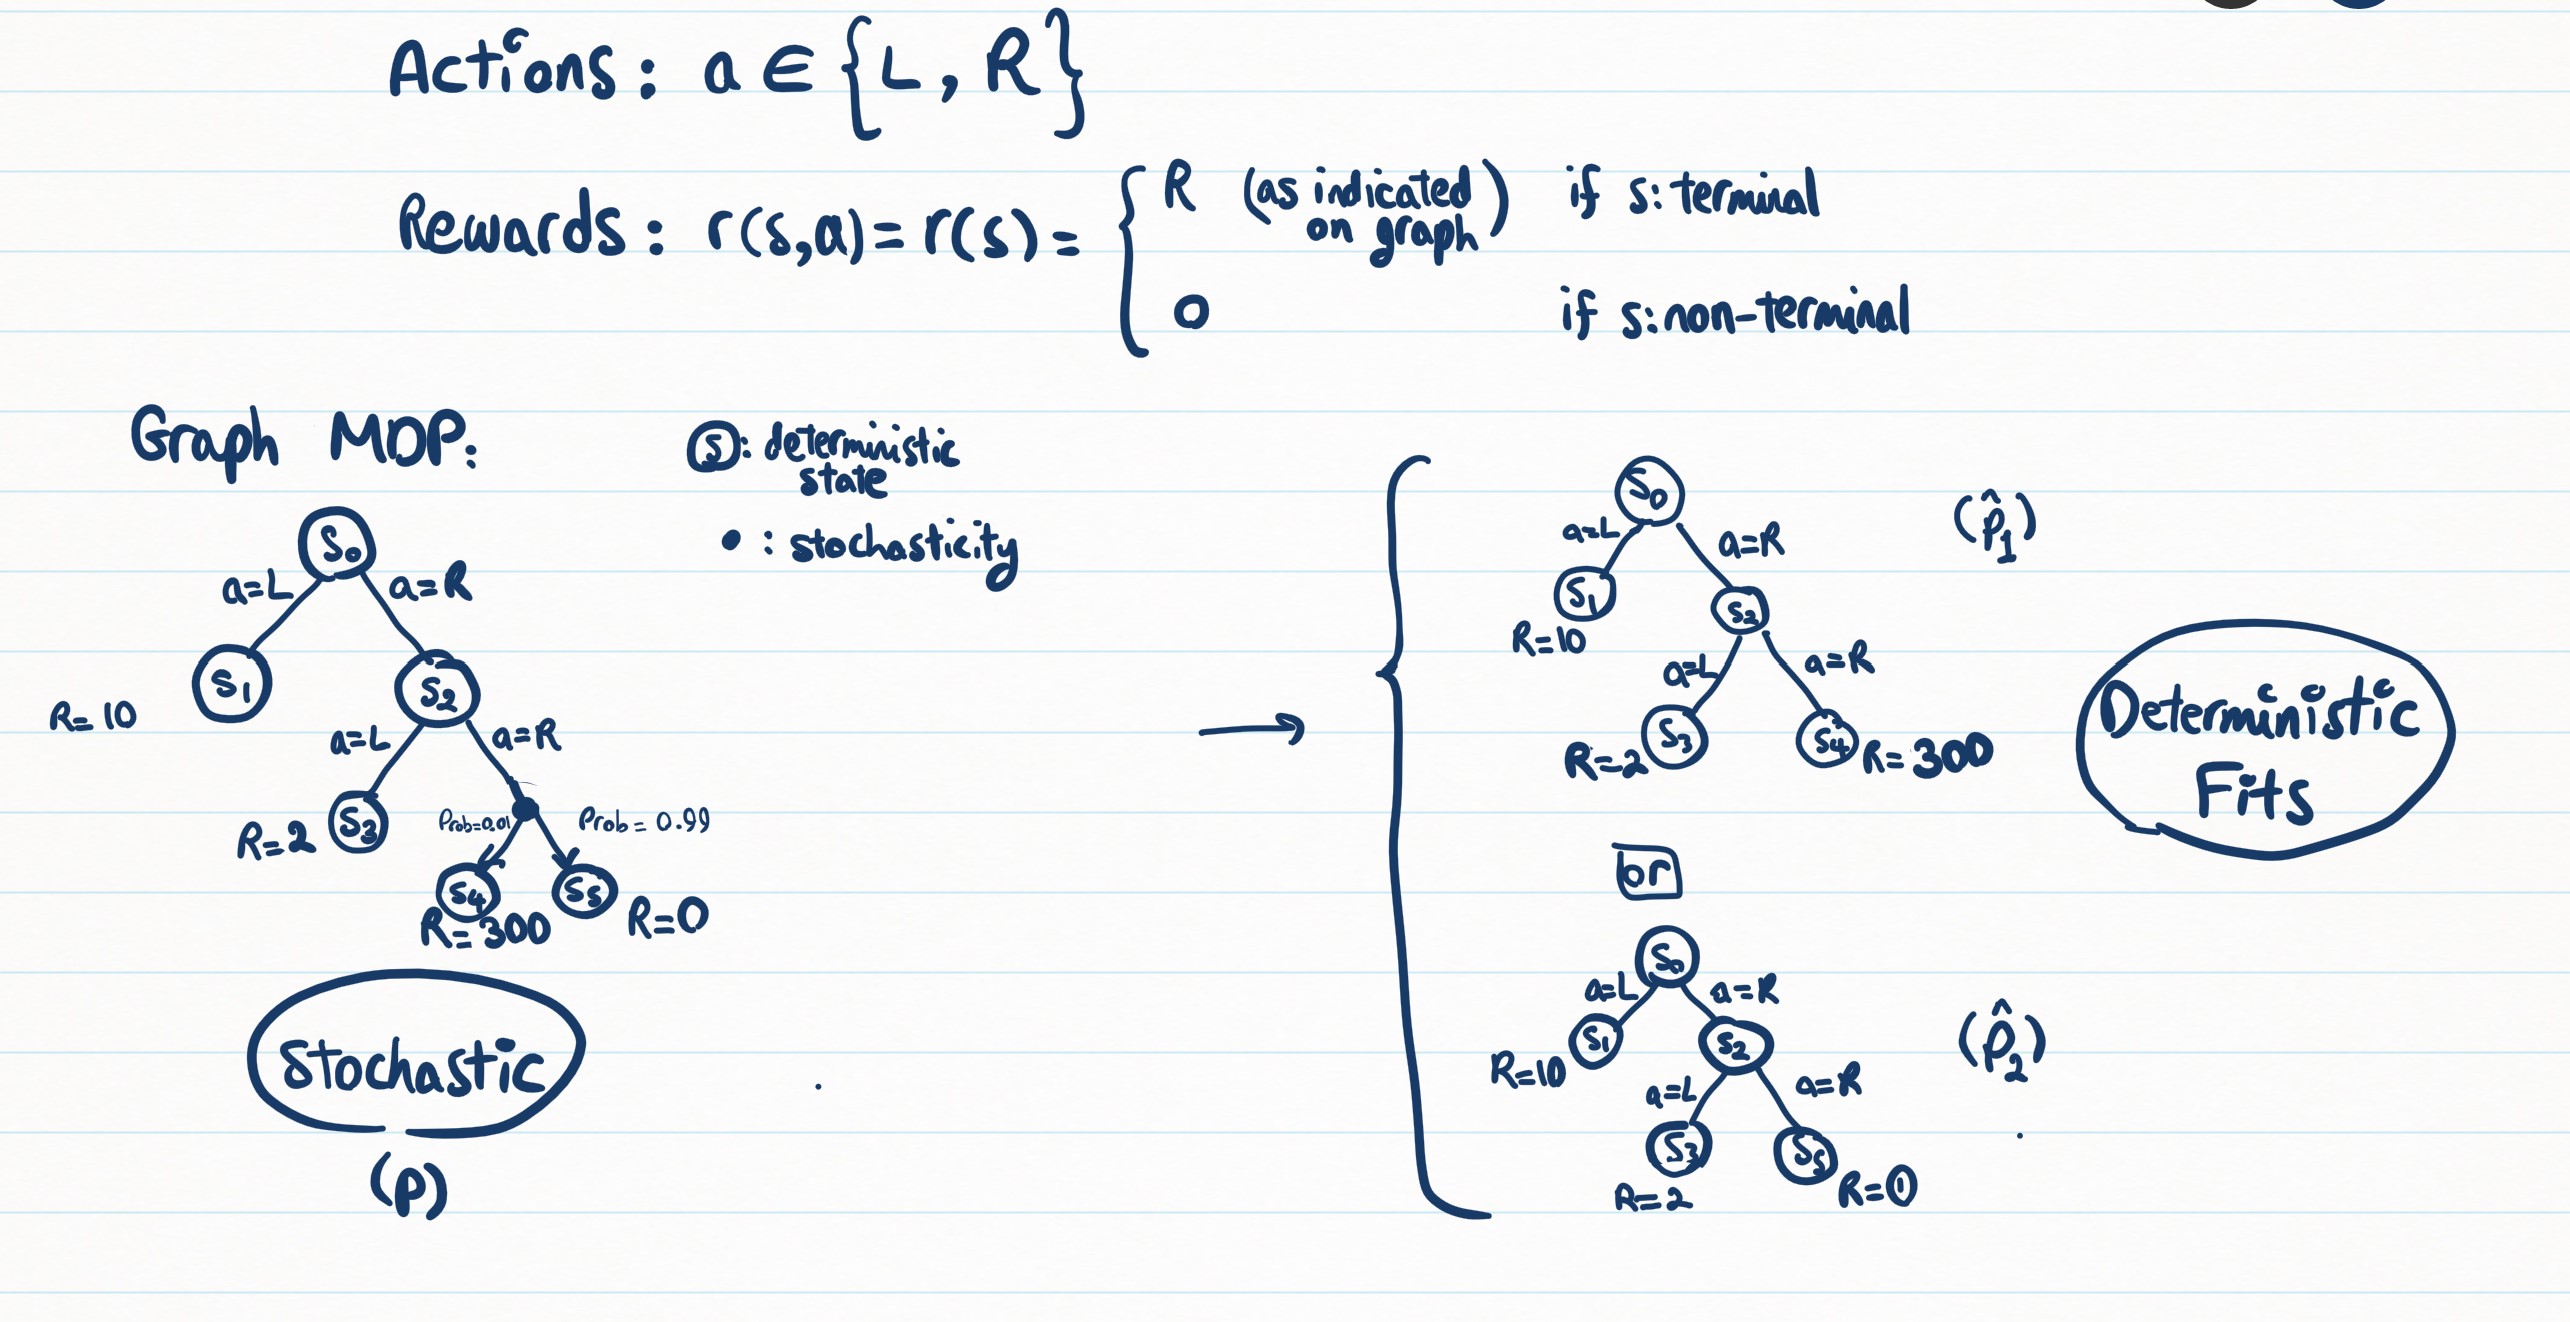 Actions: a ∈ {L, R}
Rewards: r(s,a) = r(s) = { R (as indicated on graph) if s: terminal
0 if s: non-terminal
Graph MDP:
(S): deterministic state
• : stochasticity
S₀
a=L a=R
S₁ S₂
R=10
a=L a=R
S₃
R=2
Prob=0.01 Prob=0.99
S₄ S₅
R=300 R=0
Stochastic
(p)
→
S₀
(p̂₁)
a=L a=R
S₁ S₂
R=10
a=L a=R
S₃ S₄
R=2 R=300
Deterministic
Fits
or
S₀
a=L a=R
S₁ S₂
(p̂₂)
R=10
a=L a=R
S₃ S₅
R=2 R=0